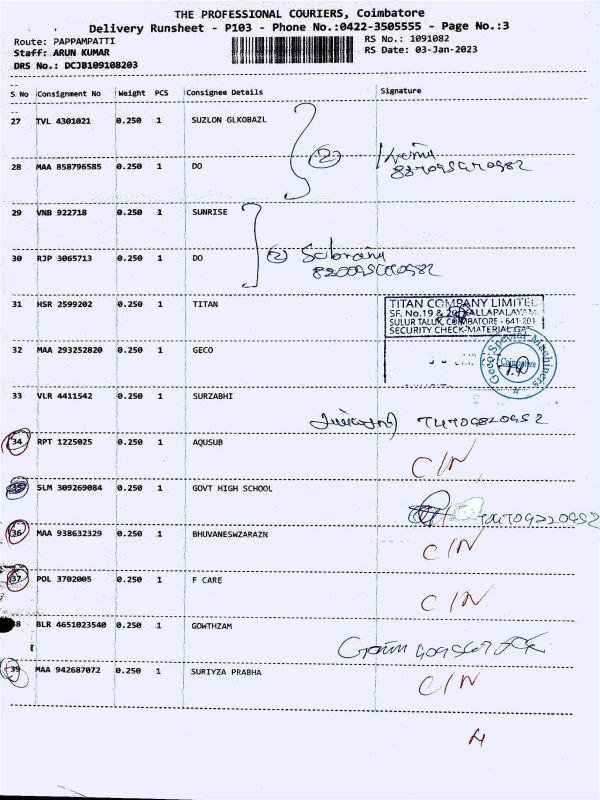 THE PROFESSIONAL COURIERS, Coimbatore
Delivery Runsheet - P103 - Phone No.:0422-3505555 - Page No.:3
Route: PAPPAMPATTI
RS No.: 1091082
Staff: ARUN KUMAR
RS Date: 03-Jan-2023
DRS No.: DCJB109108203
S No Consignment No Weight PCS Consignee Details Signature
27 TVL 4301021 0.250 1 SUZLON GLKOBAZL
28 MAA 858796585 0.250 1 DO
29 VNB 922718 0.250 1 SUNRISE
30 RJP 3065713 0.250 1 DO
31 HSR 2599202 0.250 1 TITAN
TITAN COMPANY LIMITED
SULUR TALUK, COIMBATORE - 641 201
SECURITY CHECK-MATERIAL
32 MAA 293252820 0.250 1 GECO
Geco Special Machines
Coimbatore
33 VLR 4411542 0.250 1 SURZABHI
34 RPT 1225025 0.250 1 AQUSUB C/N
35 SLM 309269084 0.250 1 GOVT HIGH SCHOOL
36 MAA 938632329 0.250 1 BHUVANESWZARAZN C/N
37 POL 3702005 0.250 1 F CARE C/N
38 BLR 4651023540 0.250 1 GOWTHZAM
39 MAA 942687072 0.250 1 SURIYZA PRABHA C/N